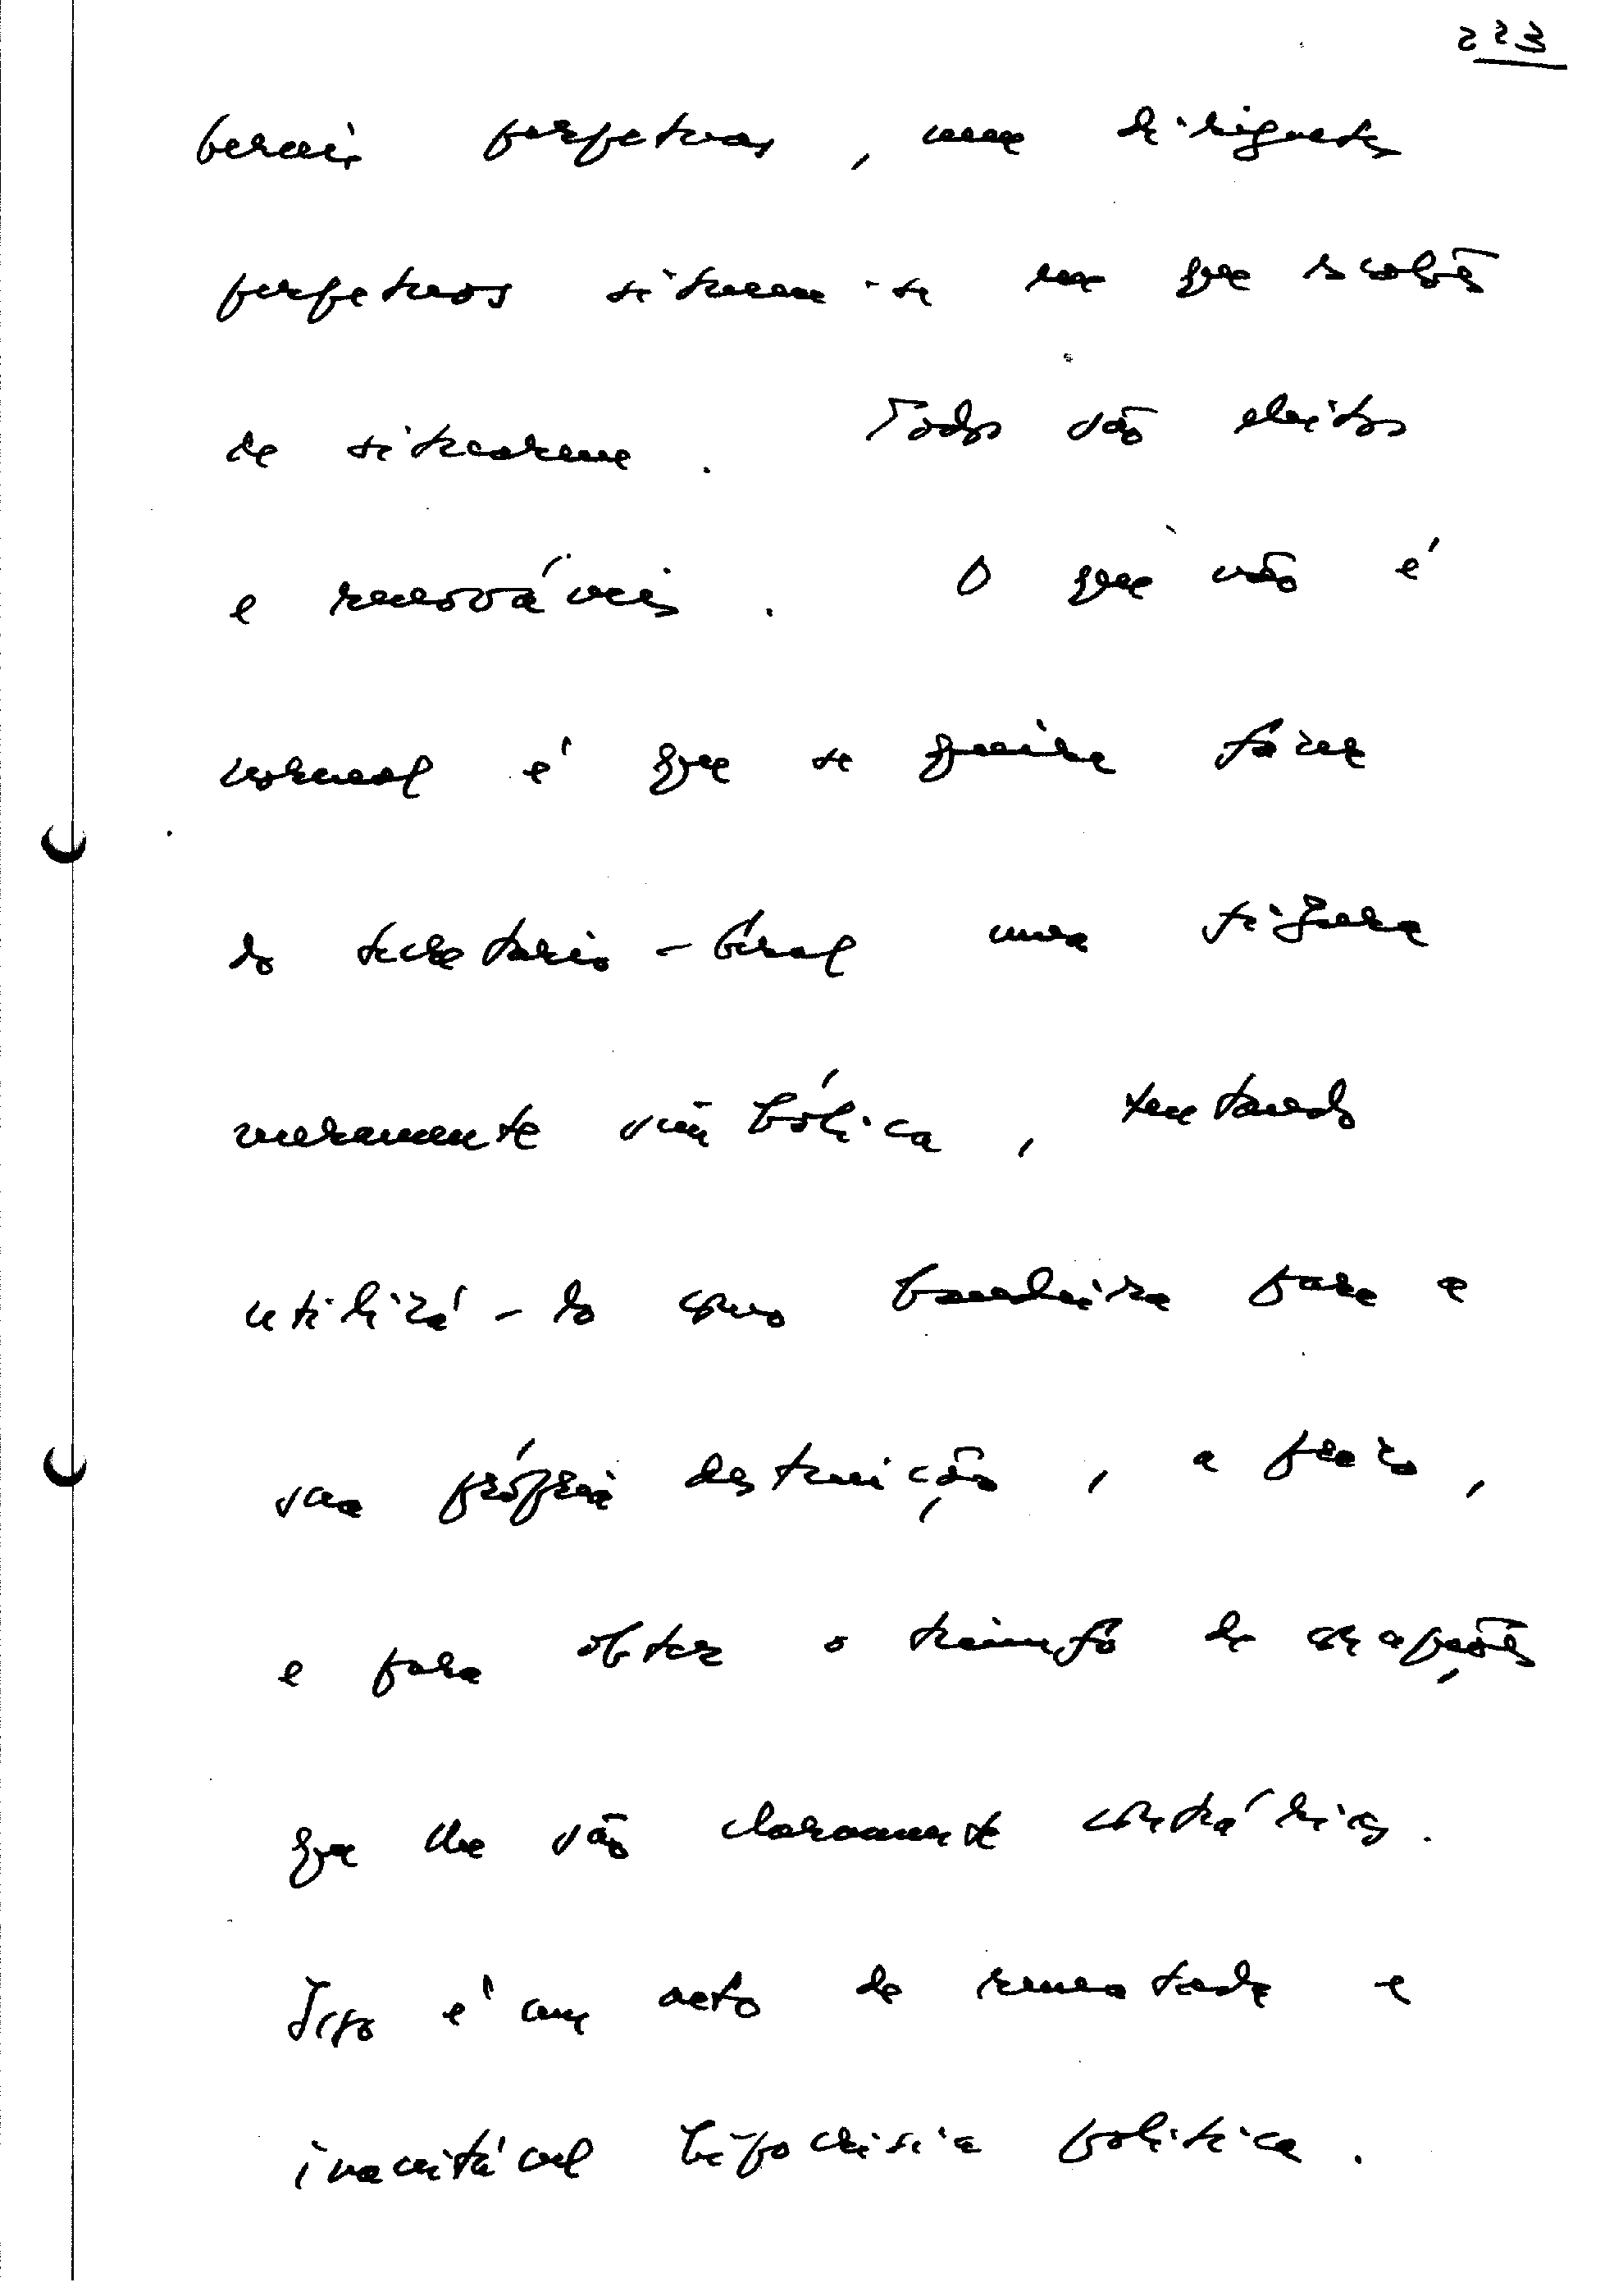 223
gerais perpetuos, nem dirigentes
perpetuos
de
. Todos são eleitos
e renováveis. O que não é
normal é que se queira fazer
do secretário-geral uma figura
meramente simbólica, tentando
utilizá-lo como bandeira para a
sua própria destruição, a prazo,
e para obter o triunfo de
que lhe são claramente contrárias.
Isso é um acto de rematada e
inaceitável hipocrisia politica.